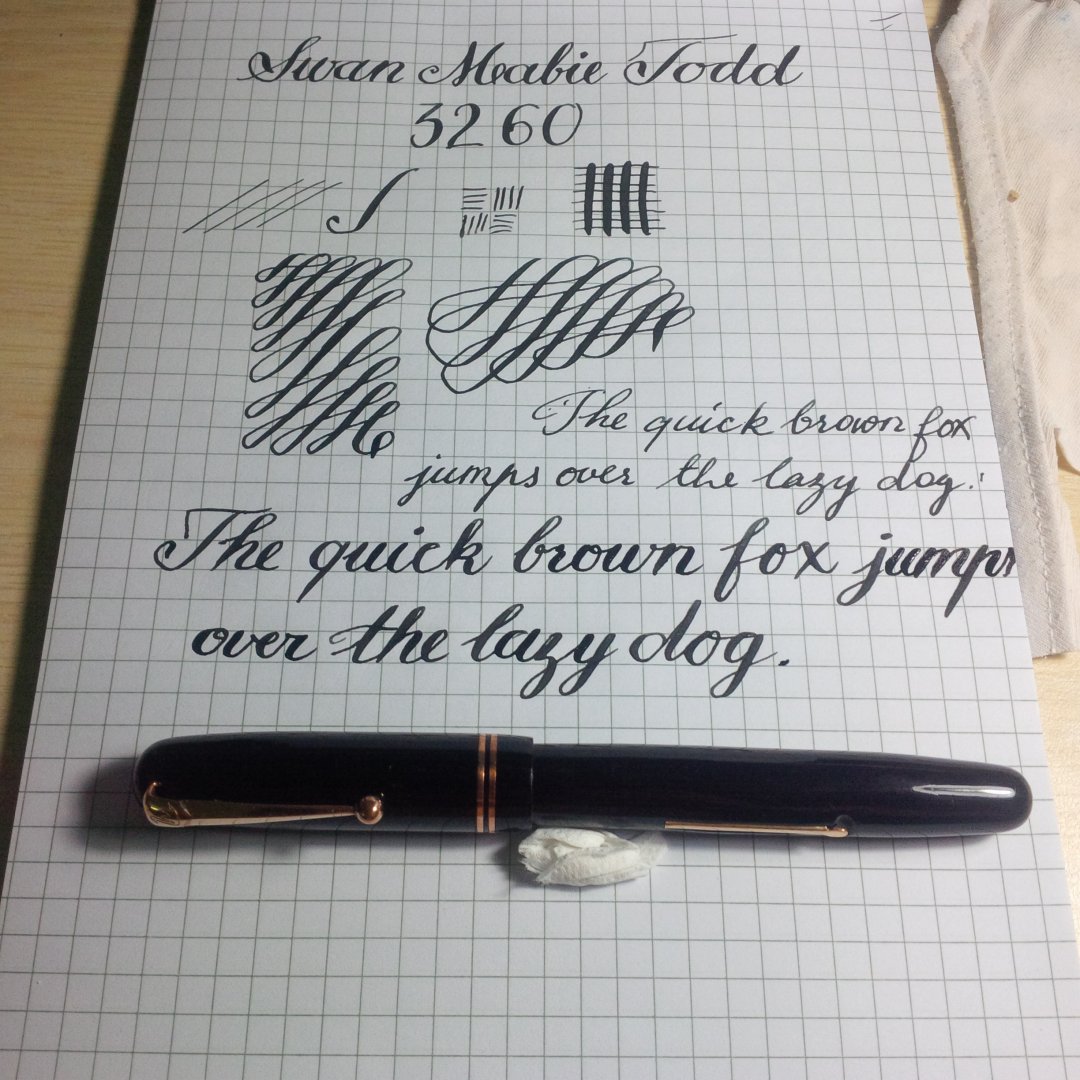 Swan Meabie Todd
3260
The quick brown fox
jumps over the lazy dog.
The quick brown fox jumps
over the lazy dog.